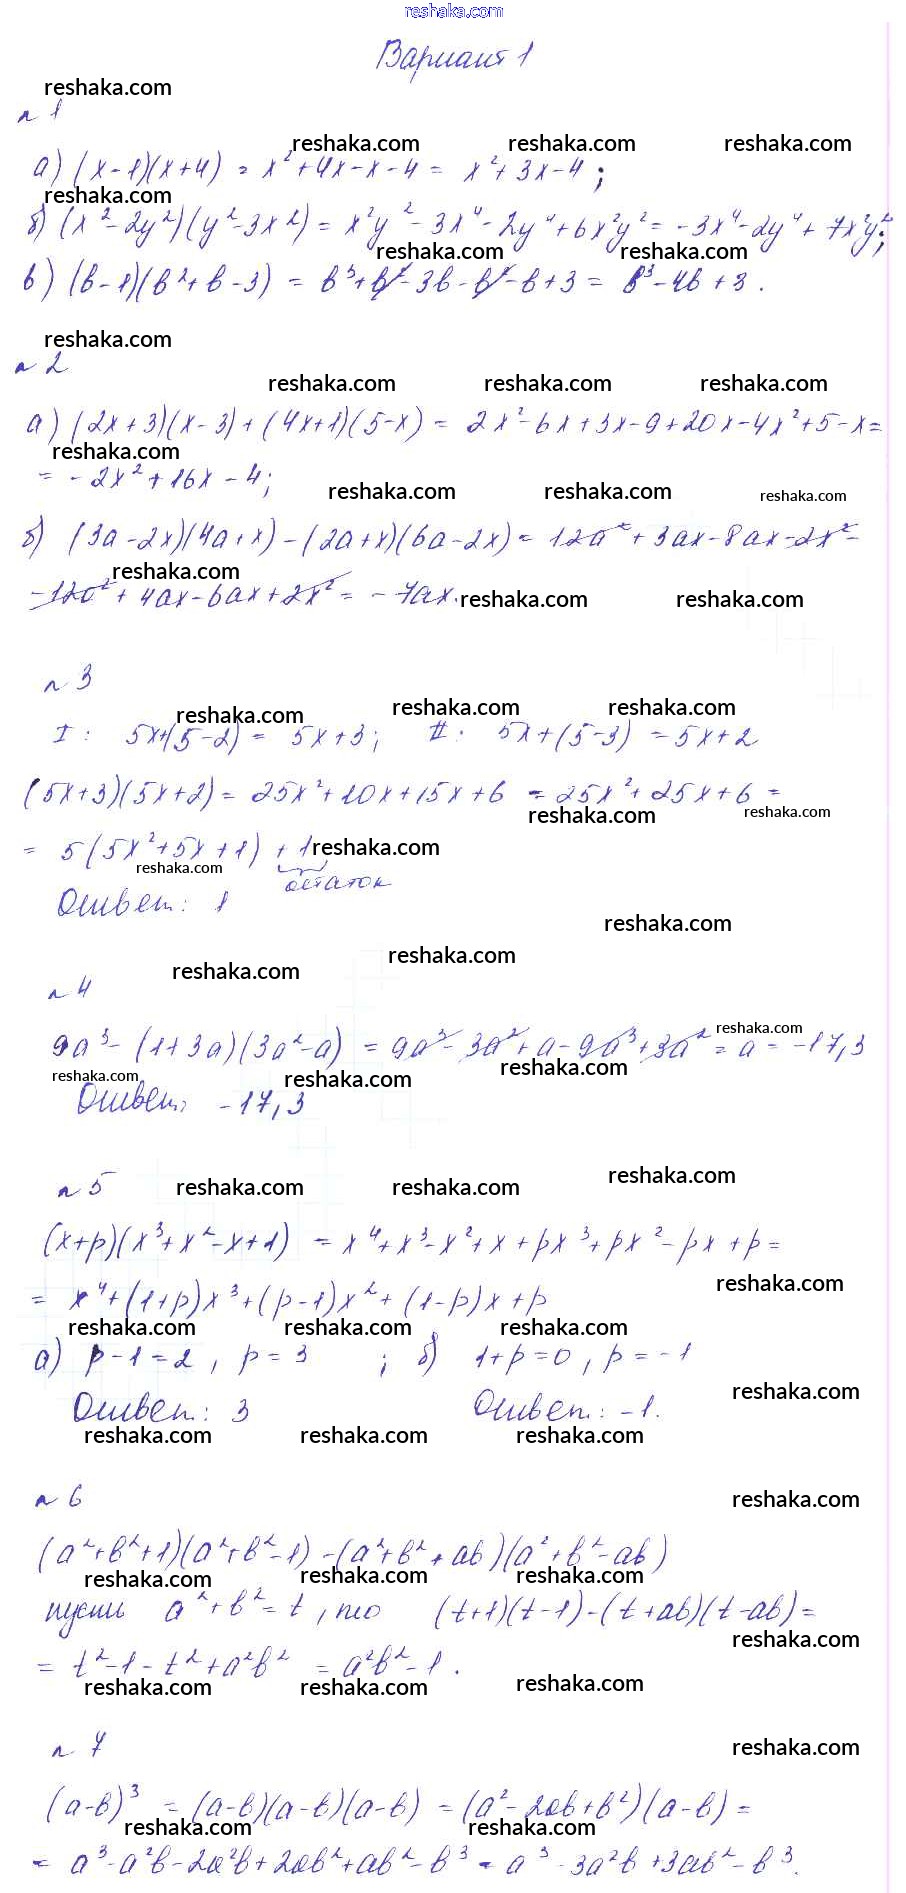 reshaka.com
Вариант 1
reshaka.com
n 1
reshaka.com reshaka.com reshaka.com
а) (x-1)(x+4) = x²+4x-x-4 = x²+3x-4;
reshaka.com
б) (x²-2y²)(y²-3x²) = x²y²-3x⁴-2y⁴+6x²y² = -3x⁴-2y⁴+7x²y²;
reshaka.com reshaka.com
в) (в-1)(в²+в-3) = в³+в²-3в-в²-в+3 = в³-4в+3.
reshaka.com
n 2
reshaka.com reshaka.com reshaka.com
а) (2x+3)(x-3)+(4x+1)(5-x) = 2x²-6x+3x-9+20x-4x²+5-x=
reshaka.com
= -2x²+16x-4;
reshaka.com reshaka.com reshaka.com
б) (3a-2x)(4a+x)-(2a+x)(6a-2x) = 12a²+3ax-8ax-2x²-
reshaka.com
-12a²+4ax-6ax+2x² = -7ax.
reshaka.com reshaka.com
n 3
reshaka.com reshaka.com reshaka.com
I: 5x+(5-2) = 5x+3; II: 5x+(5-3) = 5x+2
(5x+3)(5x+2) = 25x²+10x+15x+6 = 25x²+25x+6 =
reshaka.com reshaka.com
= 5(5x²+5x+1)+1
reshaka.com
reshaka.com
остаток
Ответ: 1
reshaka.com
reshaka.com reshaka.com
n 4
reshaka.com
9a³-(1+3a)(3a²-a) = 9a³-3a²+a-9a³+3a² = a = -17,3
reshaka.com reshaka.com reshaka.com
Ответ: -17,3
n 5
reshaka.com reshaka.com reshaka.com
(x+p)(x³+x²-x+1) = x⁴+x³-x²+x+px³+px²-px+p =
reshaka.com
= x⁴+(1+p)x³+(p-1)x²+(1-p)x+p
reshaka.com reshaka.com reshaka.com
а) p-1=2, p=3 ; б) 1+p=0, p=-1
reshaka.com
Ответ: 3 Ответ: -1.
reshaka.com reshaka.com reshaka.com
n 6
reshaka.com
(a²+в²+1)(a²+в²-1)-(a²+в²+aв)(a²+в²-aв)
reshaka.com reshaka.com reshaka.com
пусть a²+в²=t, то (t+1)(t-1)-(t+aв)(t-aв)=
reshaka.com
= t²-1-t²+a²в² = a²в²-1.
reshaka.com reshaka.com reshaka.com
n 7
reshaka.com
(a-в)³ = (a-в)(a-в)(a-в) = (a²-2aв+в²)(a-в)=
reshaka.com reshaka.com
= a³-a²в-2a²в+2aв²+aв²-в³ = a³-3a²в+3aв²-в³.